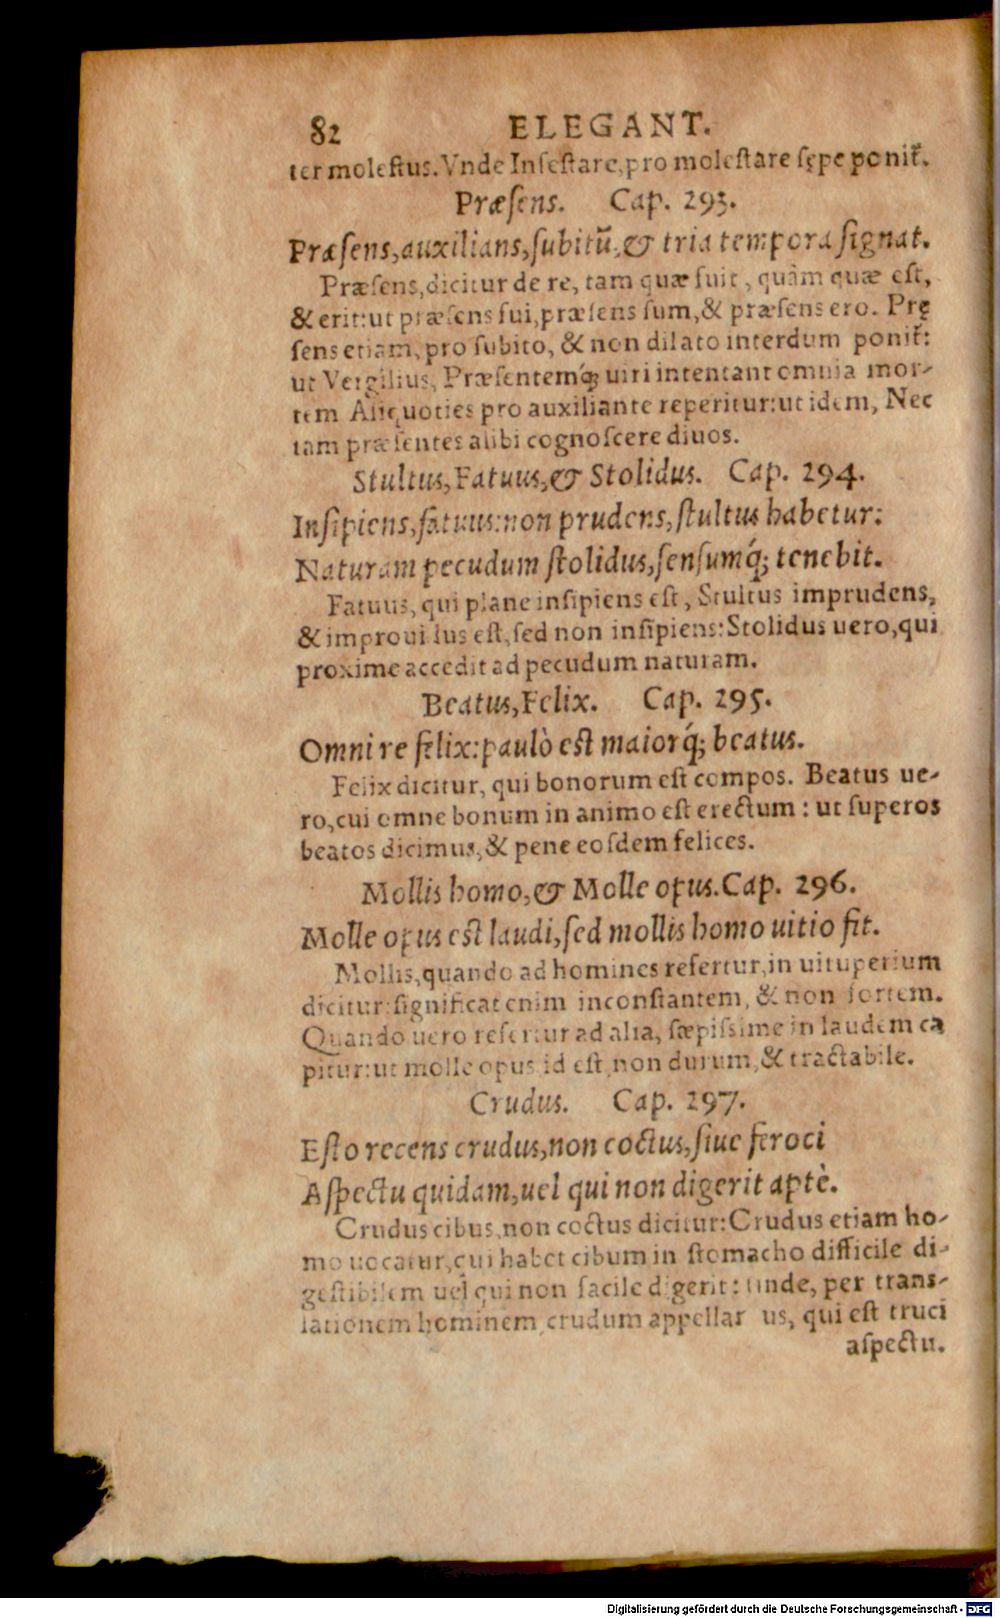 82 ELEGANT.
ter molestus. Vnde Infestare, pro molestare sępe ponit̃.
Præsens. Cap. 293.
Præsens, auxilians, subitū, & tria tempora signat.
Præsens, dicitur de re, tam quæ fuit, quàm quæ est,
& erit: ut præsens fui, præsens sum, & præsens ero. Prę
sens etiam, pro subito, & non dilato interdum ponit̃:
ut Vergilius, Præsentemq́; uiri intentant omnia mor-
tem Aliquoties pro auxiliante reperitur: ut idem, Nec
tam præsentes alibi cognoscere diuos.
Stultus, Fatuus, & Stolidus. Cap. 294.
Insipiens, fatuus: non prudens, stultus habetur:
Naturam pecudum stolidus, sensumq́; tenebit.
Fatuus, qui plane insipiens est, Stultus imprudens,
& improui sus est, sed non insipiens: Stolidus uero, qui
proxime accedit ad pecudum naturam.
Beatus, Felix. Cap. 295.
Omni re felix: paulò est maiorq́; beatus.
Felix dicitur, qui bonorum est compos. Beatus ue-
ro, cui omne bonum in animo est erectum: ut superos
beatos dicimus, & pene eosdem felices.
Mollis homo, & Molle opus. Cap. 296.
Molle opus est laudi, sed mollis homo uitio fit.
Mollis, quando ad homines refertur, in uituperium
dicitur: significat enim inconstantem, & non fortem.
Quando uero refertur ad alia, sæpissime in laudem ca
pitur: ut molle opus id est, non durum, & tractabile.
Crudus. Cap. 297.
Esto recens crudus, non coctus, siue feroci
Aspectu quidam, uel qui non digerit aptè.
Crudus cibus, non coctus dicitur: Crudus etiam ho-
mo uocatur, cui habet cibum in stomacho difficile di-
gestibilem uel qui non facile digerit: unde, per trans-
lationem hominem crudum appellar us, qui est truci
aspectu.
Digitalisierung gefördert durch die Deutsche Forschungsgemeinschaft - DFG